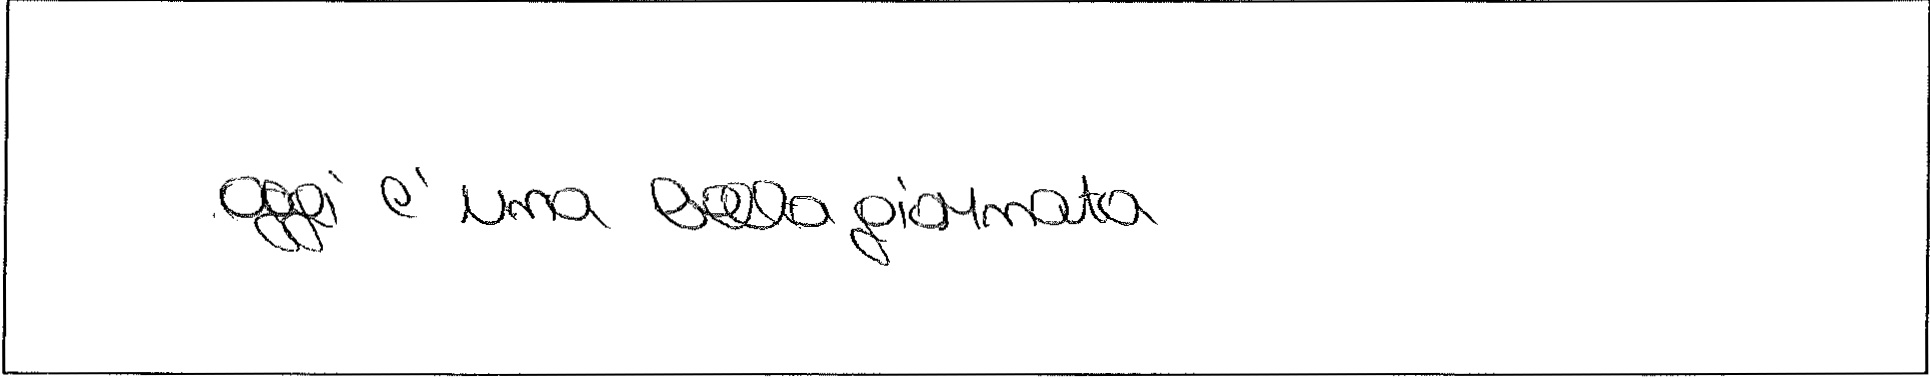 oggi e' una bella giornata